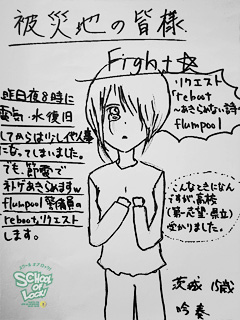 被災地の皆様
Fight☆
リクエスト
「reboot
～あきらめない詩～」
flumpool
昨日夜8時に
電気・水復旧
してからは少し他人事
になってしまいました。
でも、節電で
ネトゲあきらめますw
flumpool
のrebootリクエスト
します。
こんなときになん
ですが、高校
(第一志望・県立)
受かりました。
茨城 15歳
吟奏
SCHOOL
OF
LOCK!